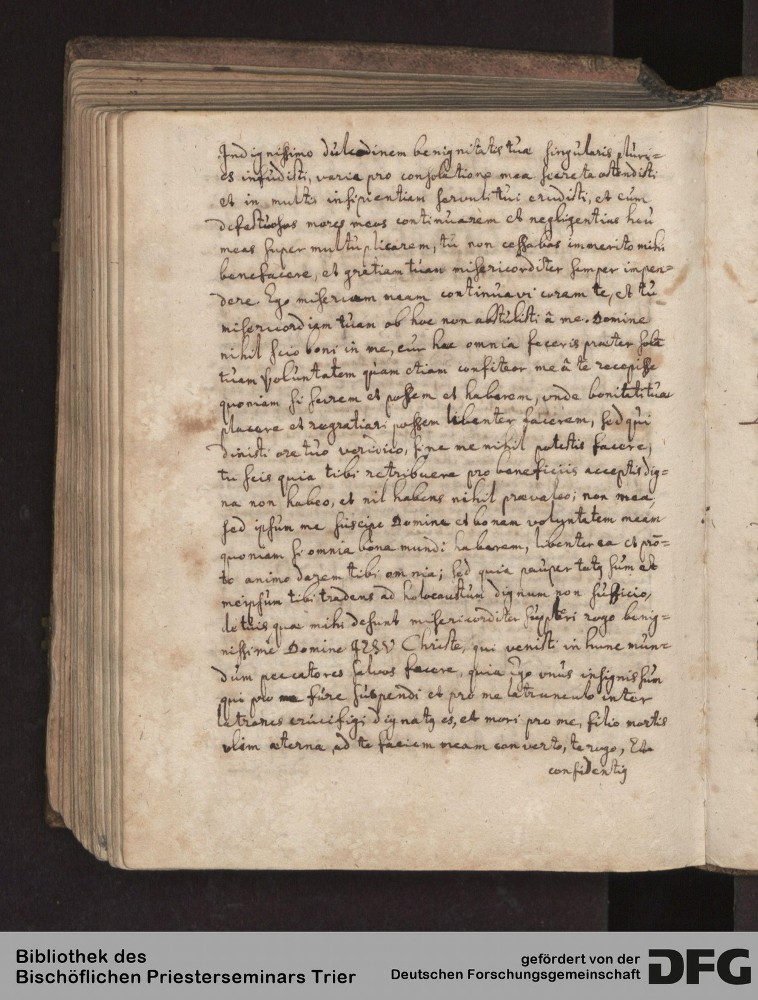 Indignissimo dulcedinem benignitatis tuæ singularis pluri=
es infudisti, varia pro consolatione mea secreta ostendisti
et in multis insipientiam servuli tui erudisti, et cum
defectuosos mores meos continuarem et negligentias heu
meas super multiplicarem, tu non cessabas immerito mihi
benefacere, et gratiam tuam misericorditer semper impen=
dere. Ego miseriam meam continuavi coram te, et tu
misericordiam tuam ob hoc non abstulisti â me. Domine
nihil scio boni in me, cur hæc omnia feceris præter solã
tuam voluntatem quam etiam confiteor me â te recepisse
quoniam si scirem et possem et haberem, unde bonitati tuæ
placere et regratiari possem libenter facerem, sed qui
dixisti ore tuo veridico, sine me nihil potestis facere,
tu scis quia tibi retribuere pro beneficiis acceptis dig=
na non habeo, et nil habens nihil prævaleo; non mea,
sed ipsum me suscipe Domine et bonam voluntatem meam
quoniam si omnia bona mundi haberem, libenter ea et prõ=
to animo darem tibi omnia; sed quia paupertatis sum et
meipsum tibi tradens ad holocaustum dignum non sufficio,
de tuis quæ mihi desunt misericorditer suppleri rogo benig=
nissime Domine IESV Christe, qui venisti in hunc mun=
dum peccatores salvos facere, quia ego unus insignis sum
qui pro me fure suspendi et pro me latrunculo inter
latrones crucifigi dignatus es, et mori pro me, filio mortis
olim æternæ, ad te faciem meam converto, te rogo, Et
confidentius
Bibliothek des
Bischöflichen Priesterseminars Trier
gefördert von der
Deutschen Forschungsgemeinschaft
DFG